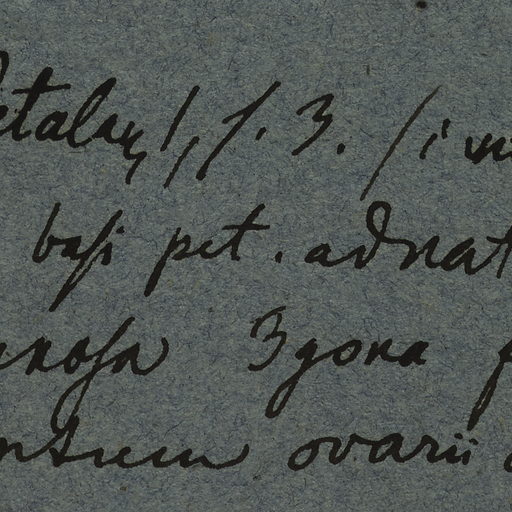 Petala 1, f. 3. / i
basi pet. adnat
nosa 3gona
ntrum ovarii